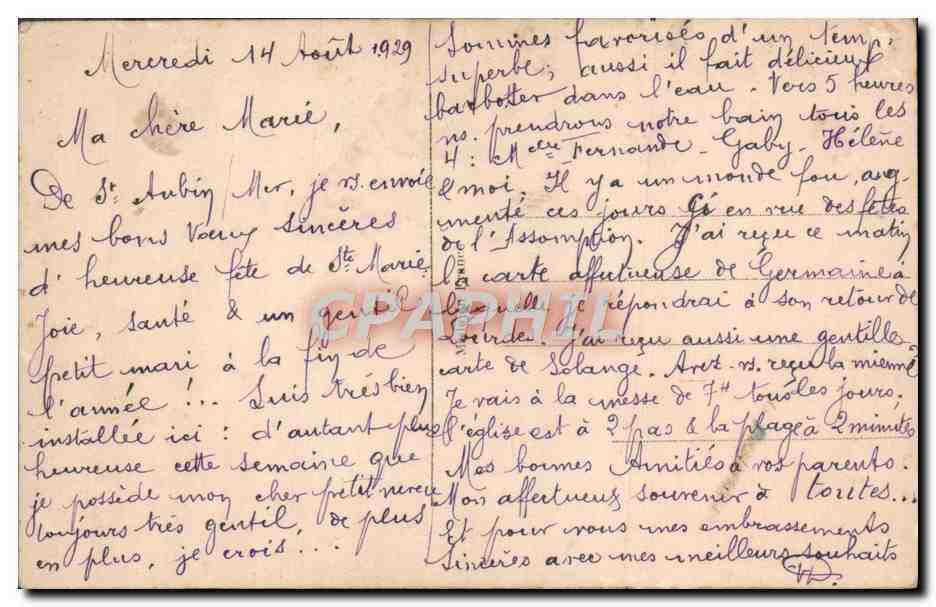 Mercredi 14 Août 1929
Ma chère Marie,
De St. Aubin/Mer, je vs. envoie
mes bons Voeux sincères
d'heureuse fête de Ste Marie.
Joie, santé & un gentil
petit mari à la fin de
l'année!... Suis très bien
installée ici: d'autant plus
heureuse cette semaine que
je possède mon cher petit neveu
toujours très gentil, de plus
en plus, je crois!...
Sommes favorisés d'un temps
superbe; aussi il fait délicieux
barbotter dans l'eau. Vers 5 heures
ns. prendrons notre bain tous les
4: Melle Fernande - Gaby - Hélène
& moi. Il y a un monde fou, aug-
menté ces jours ci en vue des fêtes
de l'Assomption. J'ai reçu ce matin
la carte affectueuse de Germaine à
laquelle je répondrai à son retour de
Lourdes. J'ai reçu aussi une gentille
carte de Solange. Avez-vs. reçu la mienne
Je vais à la messe de 7H tous les jours,
l'église est à 2 pas & la plage à 2 minutes
Mes bonnes Amitiés à vos parents.
Mon affectueux souvenir à toutes...
Et pour vous mes embrassements
sincères avec mes meilleurs souhaits
CPAPHIL